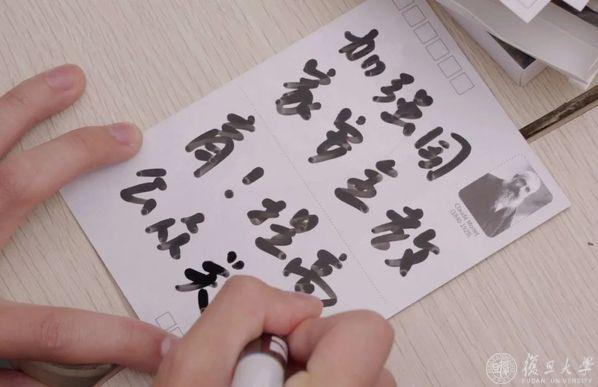 加强国
家安全教
育！提高
公众
Claude Monet
(1840-1926)
復旦大學
FUDAN UNIVERSITY